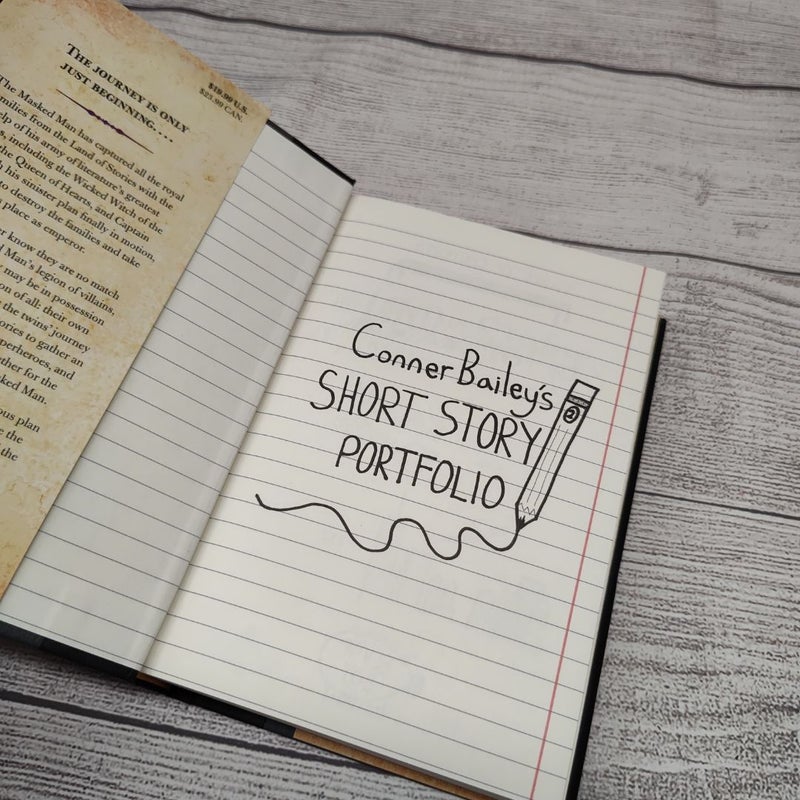 THE JOURNEY IS ONLY
JUST BEGINNING. . . .
$19.99 U.S.
$25.99 CAN.
The Masked Man has captured all the royal
families from the Land of Stories with the
help of his army of literature's greatest
including the Wicked Witch of the
the Queen of Hearts, and Captain
his sinister plan finally in motion,
to destroy the families and take
place as emperor.
know they are no match
Man's legion of villains,
may be in possession
of all: their own
the twins' journey
to gather an
and
for the
Man.
plan
the
the
Conner Bailey's
SHORT STORY
PORTFOLIO
2